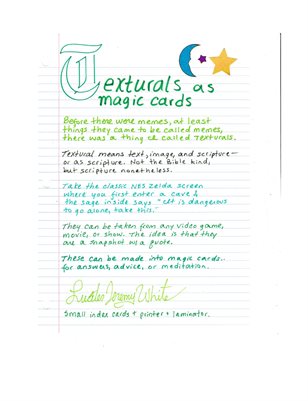 Texturals as
magic cards
Before there were memes, at least
things they came to be called memes,
there was a thing called Texturals.
Textural means text, image, and scripture—
or as scripture. Not the Bible kind,
but scripture nonetheless.
Take the classic NES Zelda screen
where you first enter a cave &
the sage inside says "It is dangerous
to go alone, take this."
They can be taken from any video game,
movie, or show. The idea is that they
are a snapshot w/a quote.
These can be made into magic cards..
for answers, advice, or meditation.
Jeremy White
Small index cards + printer + laminator.